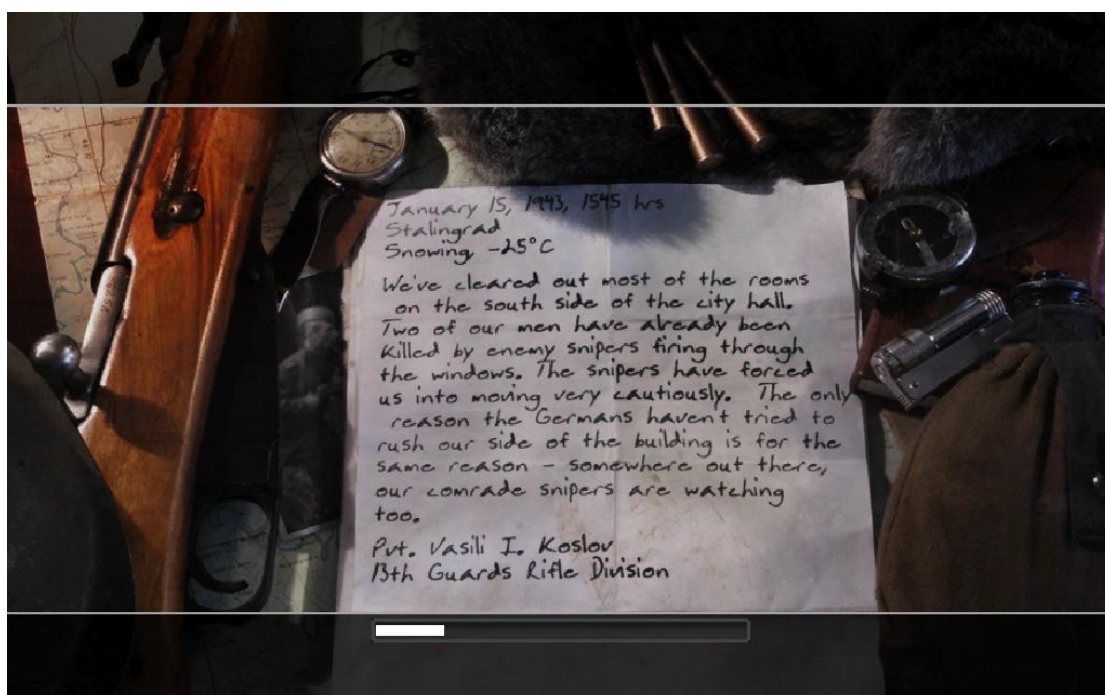 January 15, 1943, 1545 hrs
Stalingrad
Snowing, -25°C
We've cleared out most of the rooms
on the south side of the city hall.
Two of our men have already been
killed by enemy snipers firing through
the windows. The snipers have forced
us into moving very cautiously. The only
reason the Germans haven't tried to
rush our side of the building is for the
same reason - somewhere out there,
our comrade snipers are watching
too.
Pvt. Vasili I. Koslov
13th Guards Rifle Division